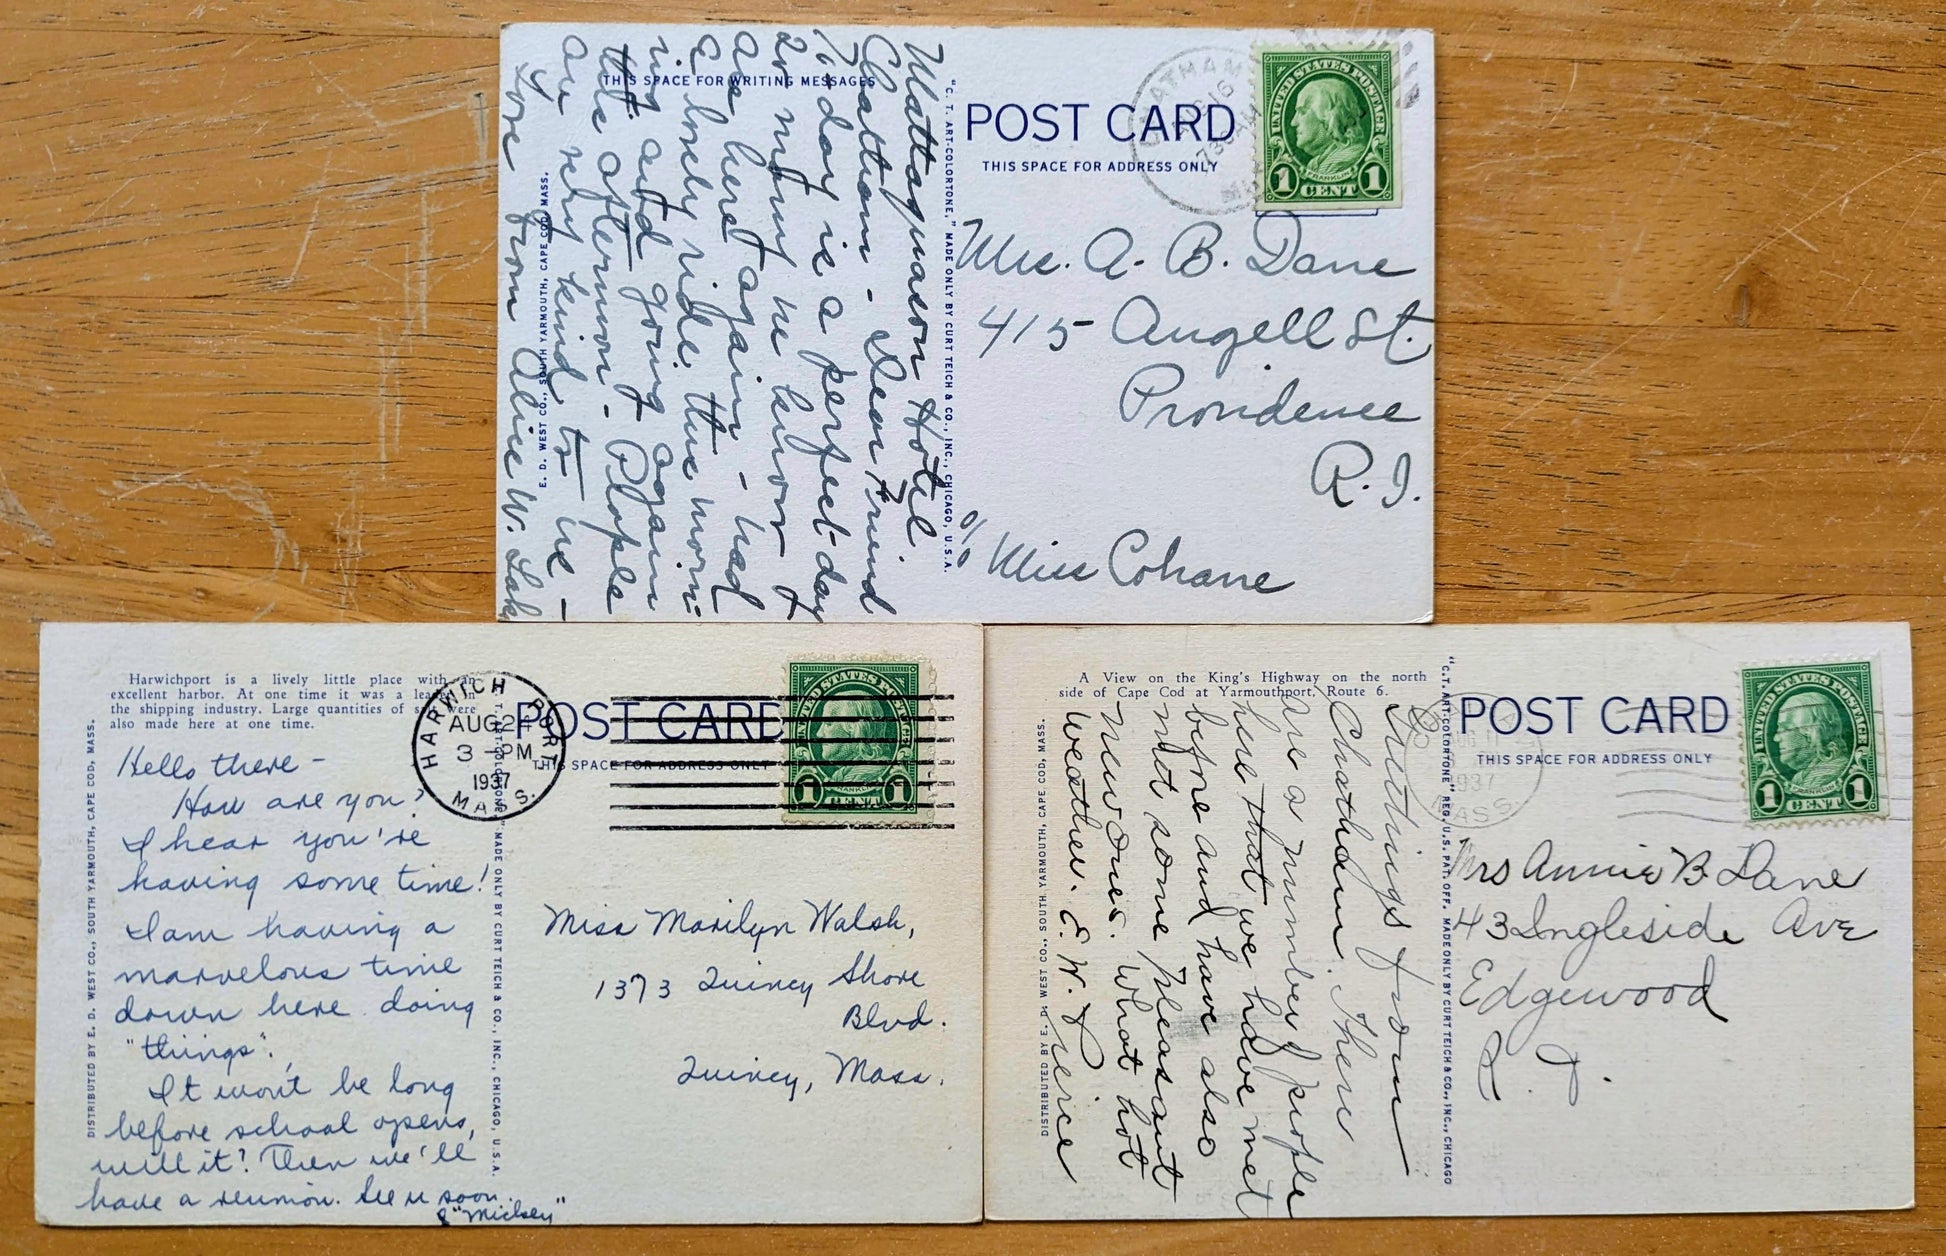 THIS SPACE FOR WRITING MESSAGES
Mattaquason Hotel
Chatham - Dear Friend
To-day is a perfect day
20 many he know
are here again - had
a lovely ride this morn-
ing and going again
this afternoon - People
are very kind to me -
Love from Alice W.
E. D. WEST CO., SOUTH YARMOUTH, CAPE COD, MASS.
"C. T. ART-COLORTONE," MADE ONLY BY CURT TEICH & CO., INC., CHICAGO, U.S.A.
POST CARD
THIS SPACE FOR ADDRESS ONLY
CHATHAM
16
730 AM
UNITED STATES POSTAGE
FRANKLIN
1 CENT 1
Mrs. A. B. Dane
415 Angell St.
Providence
R. I.
c/o Miss Cohane
Harwichport is a lively little place with an
excellent harbor. At one time it was a leader in
the shipping industry. Large quantities of salt were
also made here at one time.
Hello there -
How are you?
I hear you're
having some time!
I am having a
marvelous time
down here doing
"things".
It won't be long
before school opens,
will it? Then we'll
have a reunion. See u soon.
"Mickey"
DISTRIBUTED BY E. D. WEST CO., SOUTH YARMOUTH, CAPE COD, MASS.
C. T. ART-COLORTONE," MADE ONLY BY CURT TEICH & CO., INC., CHICAGO, U.S.A.
HARWICH PORT
AUG 24
3 - PM
1937
MASS.
POST CARD
THIS SPACE FOR ADDRESS ONLY
UNITED STATES POSTAGE
FRANKLIN
1 CENT 1
Miss Marilyn Walsh,
1373 Quincy Shore
Blvd.
Quincy, Mass.
A View on the King's Highway on the north
side of Cape Cod at Yarmouthport, Route 6.
Greetings from
Chatham. There
are a number of people
here that we have met
before and have also
met some pleasant
new ones. What hot
weather. E. W. Pierce
DISTRIBUTED BY E. D. WEST CO., SOUTH YARMOUTH, CAPE COD, MASS.
"C.T. ART-COLORTONE" REG. U.S. PAT. OFF. MADE ONLY BY CURT TEICH & CO., INC., CHICAGO
POST CARD
THIS SPACE FOR ADDRESS ONLY
AUG 11
1937
MASS.
UNITED STATES POSTAGE
FRANKLIN
1 CENT 1
Mrs Annie B. Dane
43 Ingleside Ave
Edgewood
R. I.